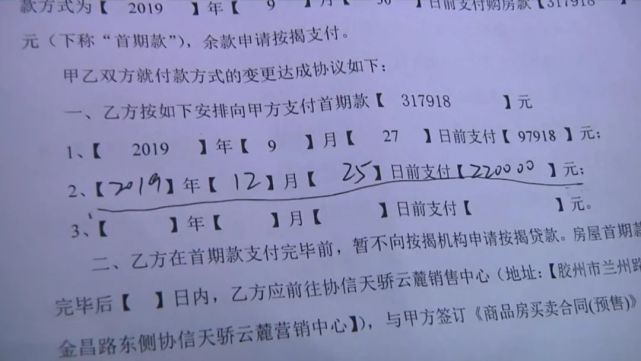 款方式为【 2019 】年【 9 】月【 30 】日前支付购房款【317918 】
元（下称“首期款”），余款申请按揭支付。
甲乙双方就付款方式的变更达成协议如下：
一、乙方按如下安排向甲方支付首期款【 317918 】元
1、【 2019 】年【 9 】月【 27 】日前支付【 97918 】元；
2、【2019】年【 12 】月【 25】日前支付【220000 】元；
3、【 】年【 】月【 】日前支付【 】元。
二、乙方在首期款支付完毕前，暂不向按揭机构申请按揭贷款。房屋首期款
完毕后【 】日内，乙方应前往协信天骄云麓销售中心（地址：【胶州市兰州路
金昌路东侧协信天骄云麓营销中心】），与甲方签订《商品房买卖合同(预售)》